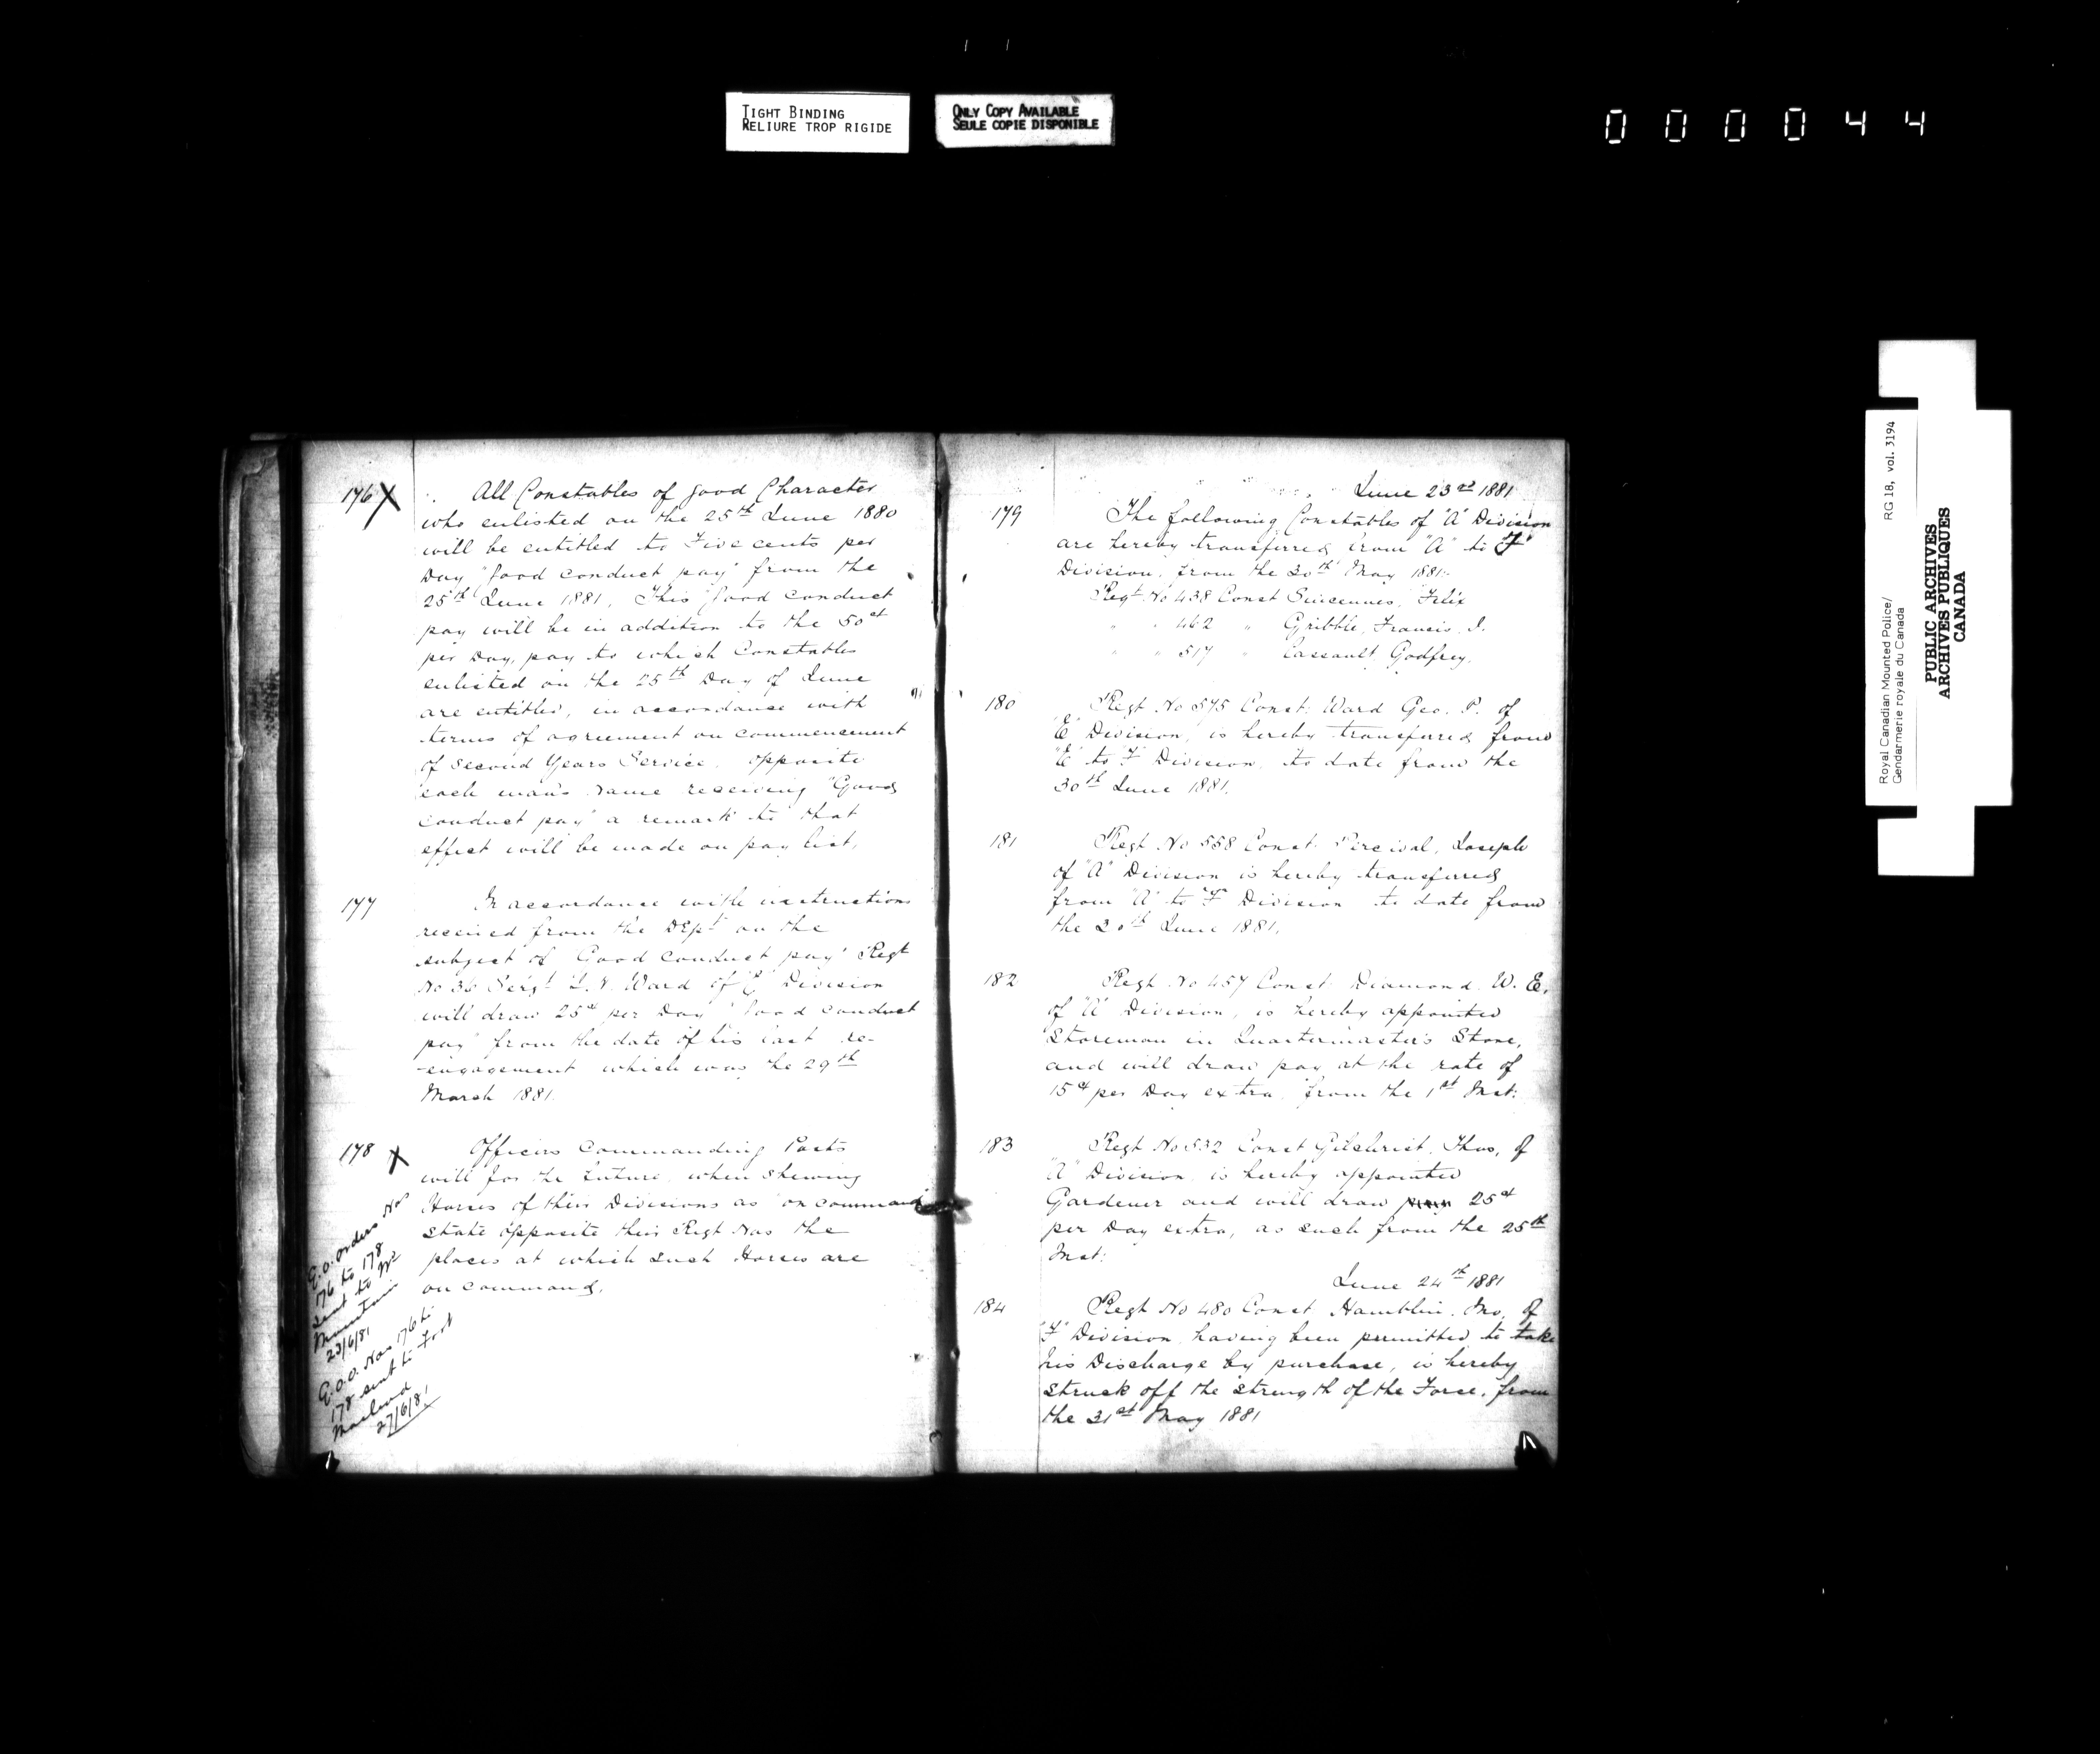 TIGHT BINDING
RELIURE TROP RIGIDE
ONLY COPY AVAILABLE
SEULE COPIE DISPONIBLE
000044
176 X All Constables of Good Character
who enlisted on the 25th June 1880
will be entitled to Five cents per
Day "Good conduct pay" from the
25th June 1881. This Good conduct
pay will be in addition to the 50ct
per Day, pay to which Constables
enlisted on the 25th Day of June
are entitled, in accordance with
terms of agreement on commencement
of Second Years Service. Opposite
each man's name receiving "Good
conduct pay" a remark to that
effect will be made on pay list.
177 In accordance with instructions
received from the Dept on the
subject of "Good conduct pay" Regt
No 36 Sergt Ward of "E" Division
will draw 25ct per Day "Good conduct
pay" from the date of his last re-
engagement which was the 29th
March 1881.
178 X Officers Commanding Posts
will for the future, when shewing
Horses of their Divisions as "on command"
state opposite their Regt Nos the
places at which such Horses are
on command.
G.O. Orders Nos
176 to 178
sent to Wd
Mountain
23/6/81
G.O.O. Nos 176 to
178 sent to Fort
Macleod
27/6/81
June 23rd 1881
179 The following Constables of "A" Division
are hereby transferred from "A" to "F"
Division, from the 30th May 1881:
Regt No 438 Const Felix
" " 462 " Gribble, Francis.
" " 517 " Cassault, Godfrey.
180 Regt No 575 Const: Ward Geo. P. of
"E" Division, is hereby transferred from
"E" to "F" Division, to date from the
30th June 1881.
181 Regt No 558 Const: Percival, Joseph
of "A" Division is hereby transferred
from "A" to "F" Division to date from
the 30th June 1881.
182 Regt No 457 Const: Diamond. W. E.
of "A" Division, is hereby appointed
Storeman in Quartermaster's Store,
and will draw pay at the rate of
15ct per Day extra, from the 1st Inst:
183 Regt No 532 Const Gilchrist, Thos, of
"A" Division is hereby appointed
Gardener and will draw 25ct
per Day extra, as such from the 25th
Inst:
June 24th 1881
184 Regt No 480 Const Hamblin. Jno, of
"F" Division having been permitted to take
his Discharge by purchase, is hereby
struck off the strength of the Force, from
the 31st May 1881
Royal Canadian Mounted Police/
Gendarmerie royale du Canada
RG 18, vol. 3194
PUBLIC ARCHIVES
ARCHIVES PUBLIQUES
CANADA